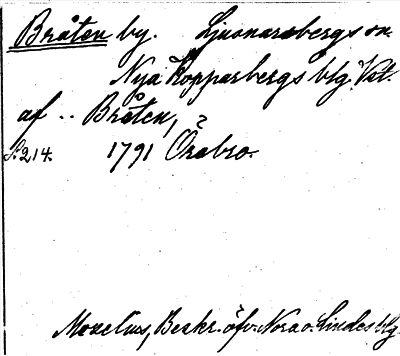 Bråten by. Ljusnarsbergs sn.
Nya Kopparbergs blg. Vst.
af .. Bråten,
S. 214. 1791 Örebro.
Moxelius, Beskr. öfv. Nora o. Lindes blg.